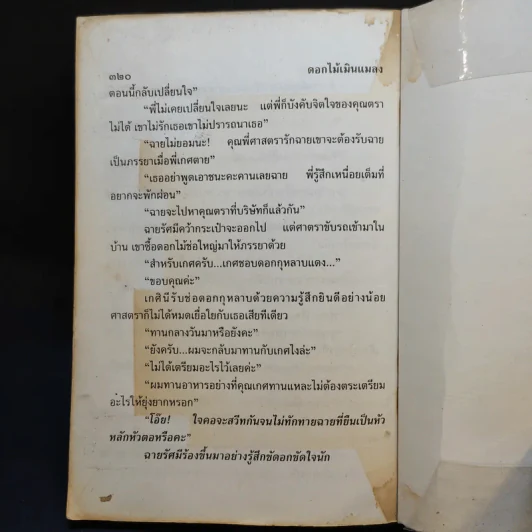 ๓๒๐ ดอกไม้เมินแมลง
ตอนนี้กลับเปลี่ยนใจ”
“พี่ไม่เคยเปลี่ยนใจเลยนะ แต่พี่ก็บังคับจิตใจของคุณตรา
ไม่ได้ เขาไม่รักเธอเขาไม่ปรารถนาเธอ”
“ฉายไม่ยอมนะ! คุณพี่ศาสตรารักฉายเขาจะต้องรับฉาย
เป็นภรรยาเมื่อพี่เกศตาย”
“เธออย่าพูดเอาชนะคะคานเลยฉาย พี่รู้สึกเหนื่อยเต็มที
อยากจะพักผ่อน”
“ฉายจะไปหาคุณตราที่บริษัทก็แล้วกัน”
ฉายรัศมีคว้ากระเป๋าจะออกไป แต่ศาตราขับรถเข้ามาใน
บ้าน เขาซื้อดอกไม้ช่อใหญ่มาให้ภรรยาด้วย
“สำหรับเกศครับ...เกศชอบดอกกุหลาบแดง...”
“ขอบคุณค่ะ”
เกศินีรับช่อดอกกุหลาบด้วยความรู้สึกยินดีอย่างน้อย
ศาสตราก็ไม่ได้หมดเยื่อใยกับเธอเสียทีเดียว
“ทานกลางวันมาหรือยังคะ”
“ยังครับ...ผมจะกลับมาทานกับเกศไงล่ะ”
“ไม่ได้เตรียมอะไรไว้เลยค่ะ”
“ผมทานอาหารอย่างที่คุณเกศทานแหละไม่ต้องตระเตรียม
อะไรให้ยุ่งยากหรอก”
“โอ๊ย! ใจคอจะสวีทกันจนไม่ทักทายฉายที่ยืนเป็นหัว
หลักหัวตอหรือคะ”
ฉายรัศมีร้องขึ้นมาอย่างรู้สึกขัดอกขัดใจนัก